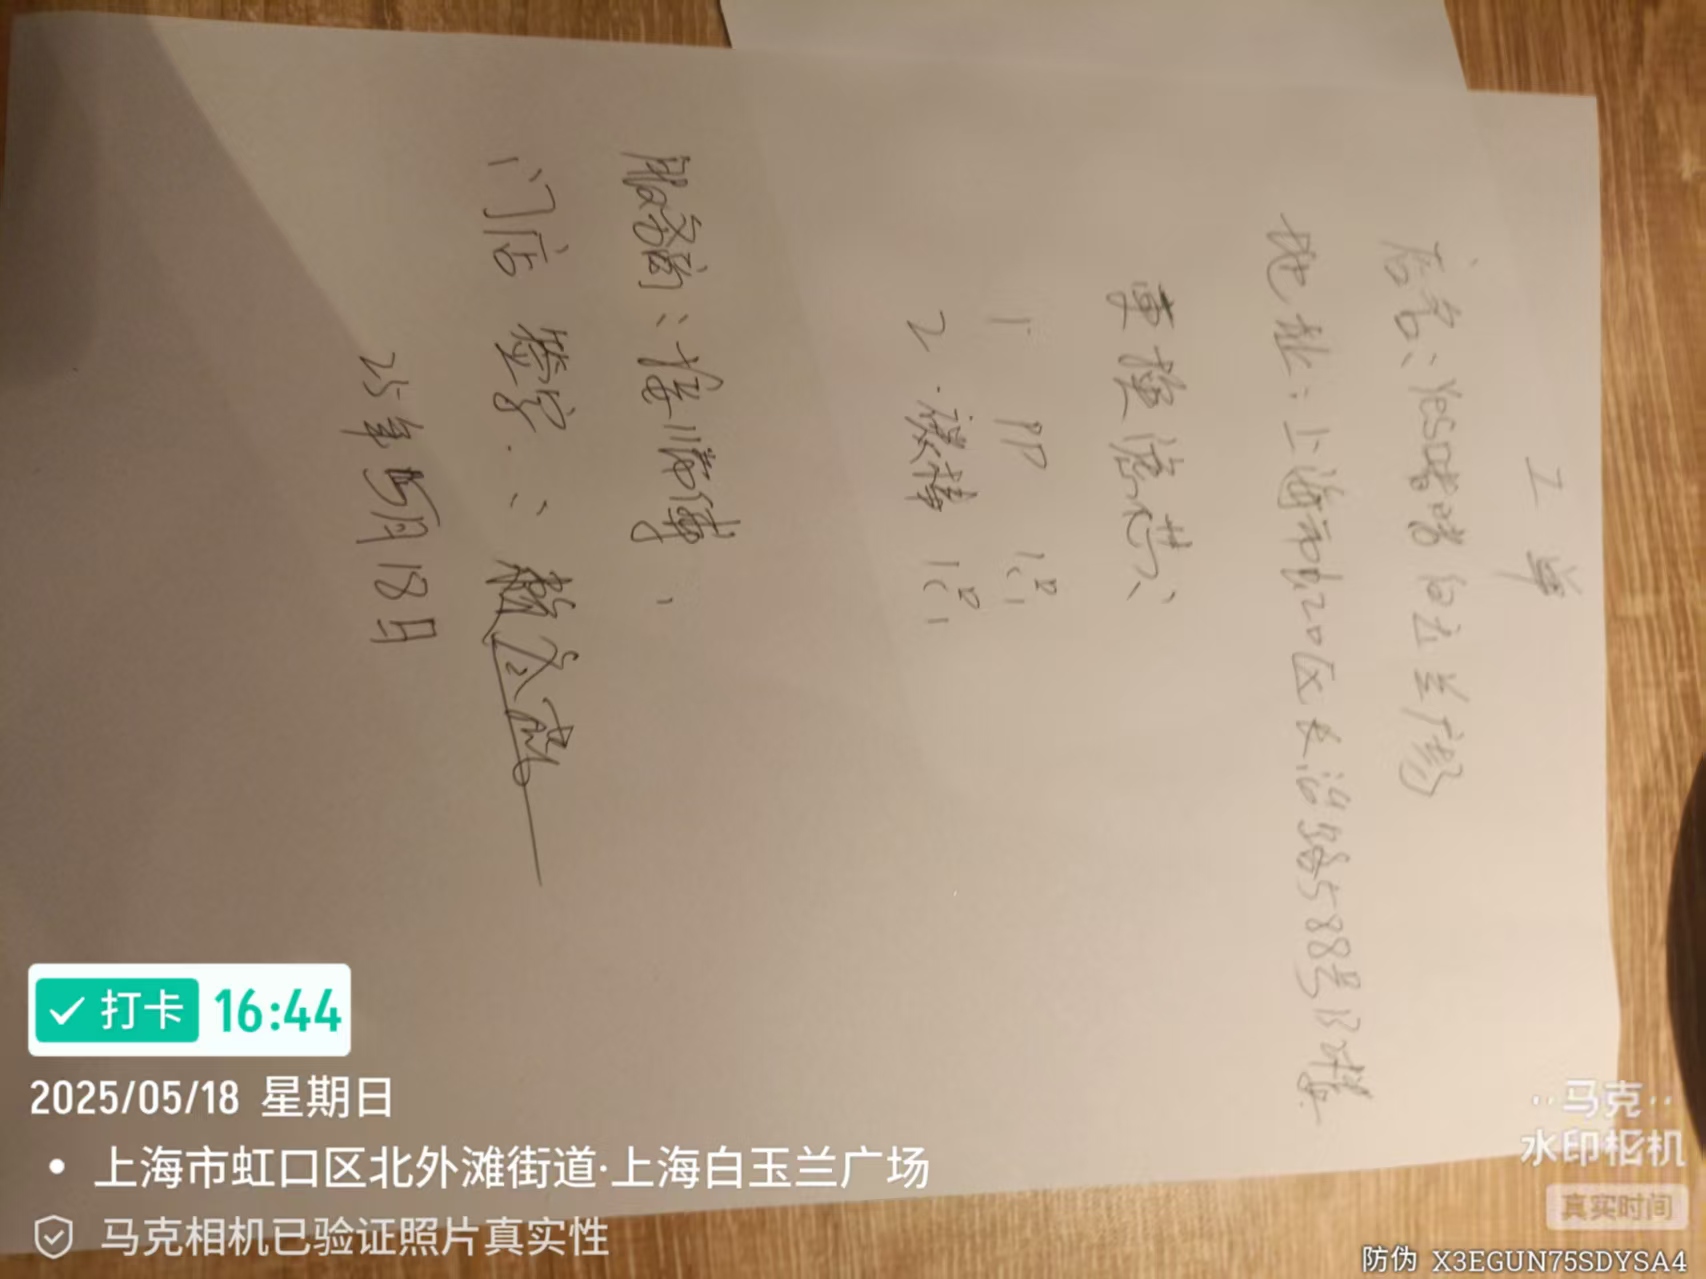 工单
店名：yes啫啫 白玉兰广场
地址：上海市虹口区长治路588号B2楼
更换滤芯：
1 PP 1只
2. 碳棒 1只
服务商：
门店签字：
25年5月18日
打卡 16:44
2025/05/18 星期日
上海市虹口区北外滩街道·上海白玉兰广场
马克相机已验证照片真实性
马克
水印相机
真实时间
防伪 X3EGUN75SDYSA4